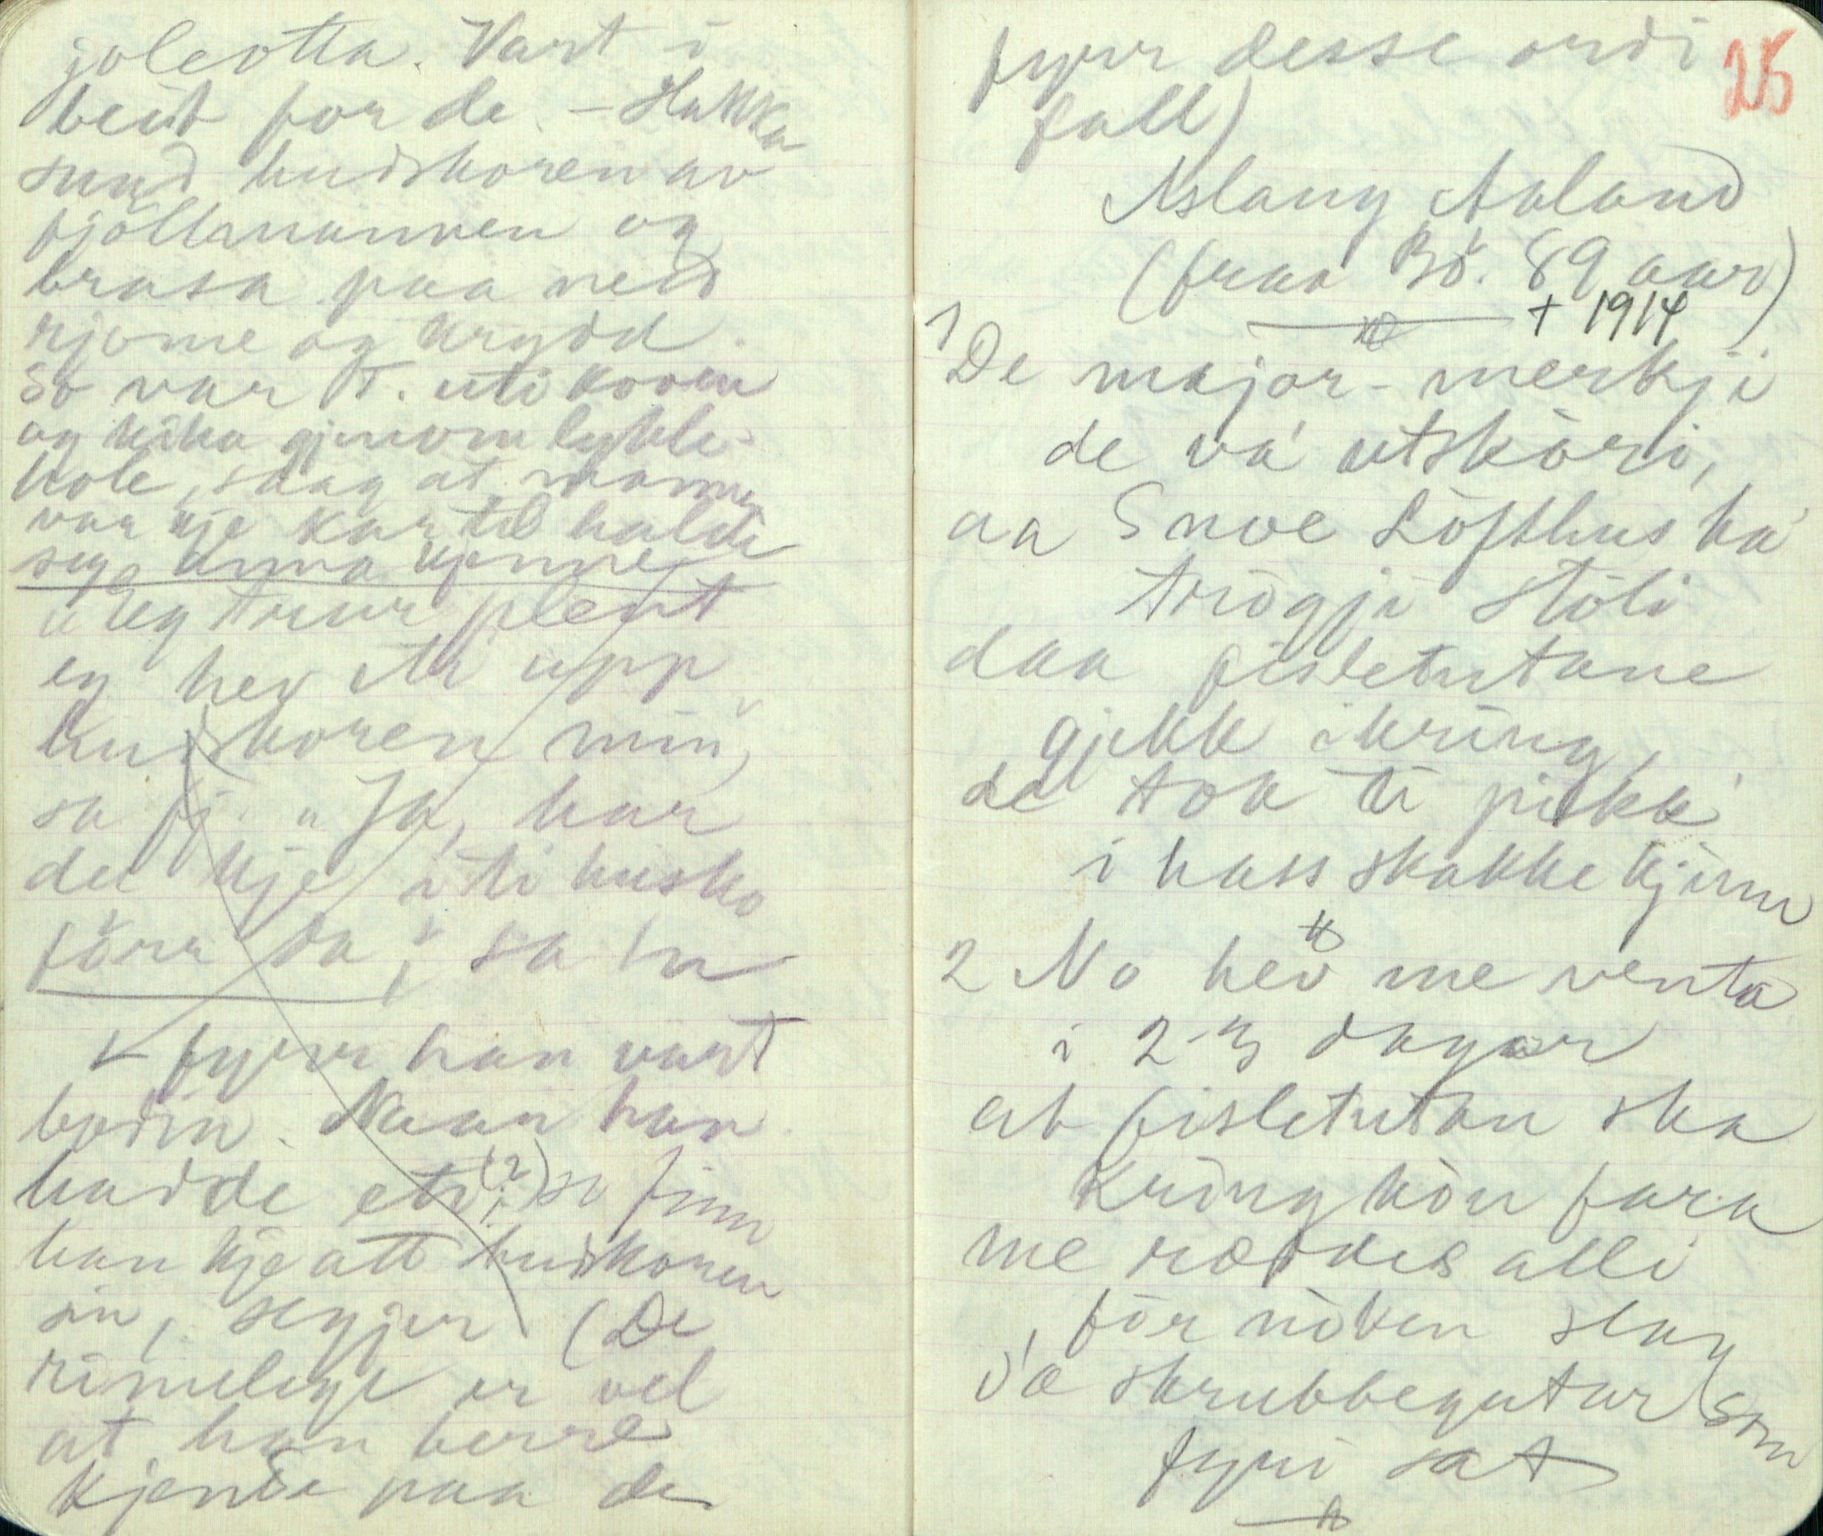 joleotta. Vart i
beit for de. – Hakka
sund hudskoren av
fjøllmannen og
brasa paa med
rjome og krydd.
So var T. uti koven
og kika gjenom lykle-
hole, saag at mannen
var kje kar til halde
seg
"Eg trur plent
eg hev eti upp
hudskoren min,
sa fj. "Ja, kar
du kje eti husko
førr da", sa hu
fyrr han vart
bodin. Naar han
hadde eti, (?) so finn
han kje att hudskoren
sin, segjer (De
rimelege er vel
at han berre
kjende paa de
fyrr desse ordi
fall)
25
Aslaug Aaland
(fraa Bø. 89 aar)
+ 1914
1 De major-merkji
de va utskòri,
aa Snoe Lòfthus ha
trògji stòli
daa fisletutane
gjekk ikring,
de tok ti pikka
i hass skakke kjinn
2 No hev me venta
i 2-3 dagar
at fisletutan ska
kring kòn fara
me ræddes alli
før nòken slag
skrubbegutar som
fyri sat